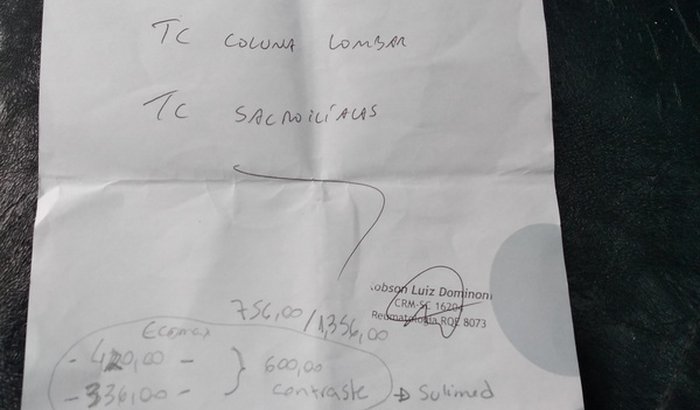 TC COLUNA LOMBAR
TC SACROILÍACAS
Robson Luiz Dominoni
CRM-SC 16204
Reumatologia RQE 8073
756,00/1,356,00
Ecomax
- 420,00 -
- 336,00 -
600,00
contraste → Sulimed